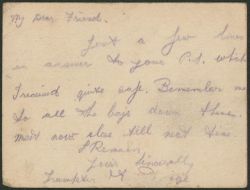 My Dear Friend.
Just a few lines
in answer to your P.C. which
I received quite safe. Remember me
to all the boys down there.
must now close till next time.
I Remain
Yours Sincerely
Trumpeter